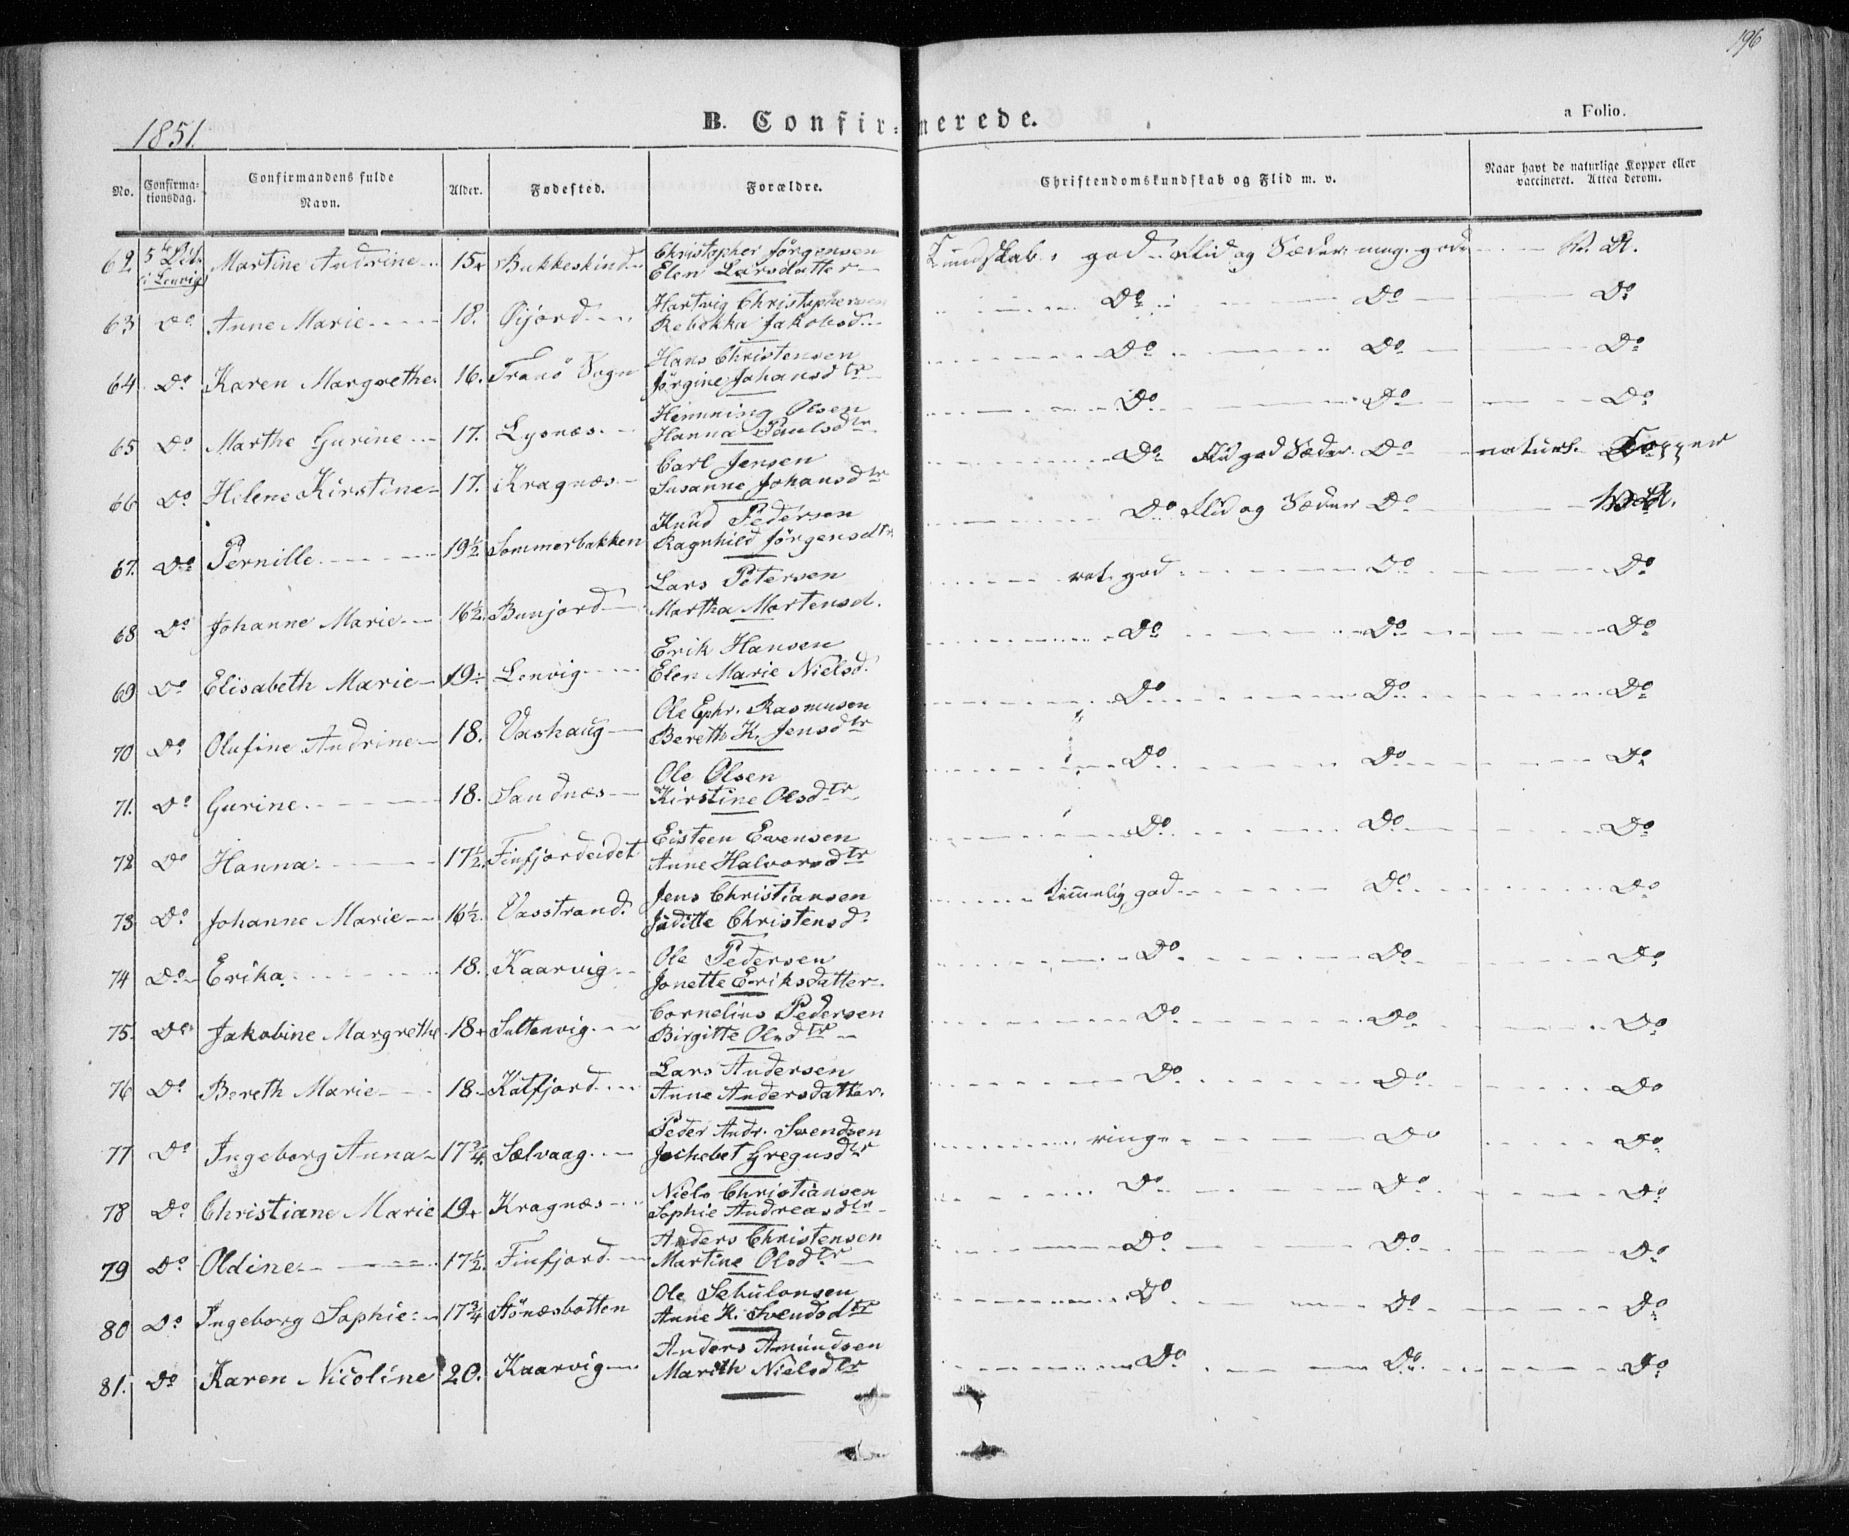 196
1851.
B. Confirmerede.
a Folio.
No. Confirmationsdag. Confirmandens fulde Navn. Alder. Fødested. Forældre. Christendomskundskab og Flid m. v. Naar havt de naturlige Kopper eller vaccineret. Attest derom.
62. i Lenvig Martine Andrine 15 Bukkeskind Christopher Jörgensen
Elen Larsdatter Kundskab god Flid og Sæder meg. gode V. A.
63 Do Anne Marie 18. Hartvig Christophersen
Rebekka Jakobsd. Do Do Do
64 Do Karen Margrethe 16. Tranö Sogn Hans Christensen
Jörgine Johansdtr Do Do Do
65 Do Marthe Gurine 17. Lysnæs Hemming Olsen
Hanna Paulsdtr Do Do Do
66 Do Helene Kirstine 17. Kragnæs Carl Jensen
Susanne Johansdtr Do Flid god Sæder Do naturl. Kopper
67. Do Pernille 19½ Sommerbakken Knud Pedersen
Ragnhild Jörgensdtr Do Flid og Sæder Do V. A.
68 Do Johanne Marie 16½ Bunjord Lars Petersen
Martha Mortensd. god Do Do
69 Do Elisabeth Marie 19 Lenvig Erik Hansen
Elen Marie Nielsd. Do Do Do
70 Do Olufine Andrine 18. Vashaug Ole Ephr. Rasmusen
Bereth K. Jensdtr Do Do Do
71. Do Gurine 18. Sandnæs Ole Olsen
Kirstine Olsdtr Do Do Do
72 Do Hanna 17½ Finfjordeidet Eisteen Evensen
Anne Halvorsdtr Do Do Do
73 Do Johanne Marie 16½ Vasstrand Jens Christiansen
Juditte Christensd. temmelig god Do Do
74 Do Erika 18. Kaarvig Ole Pedersen
Jonette Eriksdatter Do Do Do
75. Do Jakobine Margrethe 18 Cornelius Pedersen
Birgitte Olsdtr Do Do Do
76 Do Bereth Marie 18 Katfjord Lars Andersen
Anne Andersdatter Do Do Do
77 Do Ingeborg Anna 17¾ Sælvaag Peder Andr. Svendsen
Jochebet Gregusdtr ringe Do Do
78 Do Christiane Marie 19 Kragnæs Niels Christiansen
Sophie Andreasdtr Do Do Do
79 Do Oldine 17½ Finfjord Anders Christensen
Martine Olsdtr Do Do Do
80 Do Ingeborg Sophie 17¾ Stönæsbotten Ole Sebulonsen
Anne K. Svendsdtr Do Do Do
81. Do Karen Nicoline 20. Kaarvig Anders Amundsen
Marith Nielsdtr Do Do Do